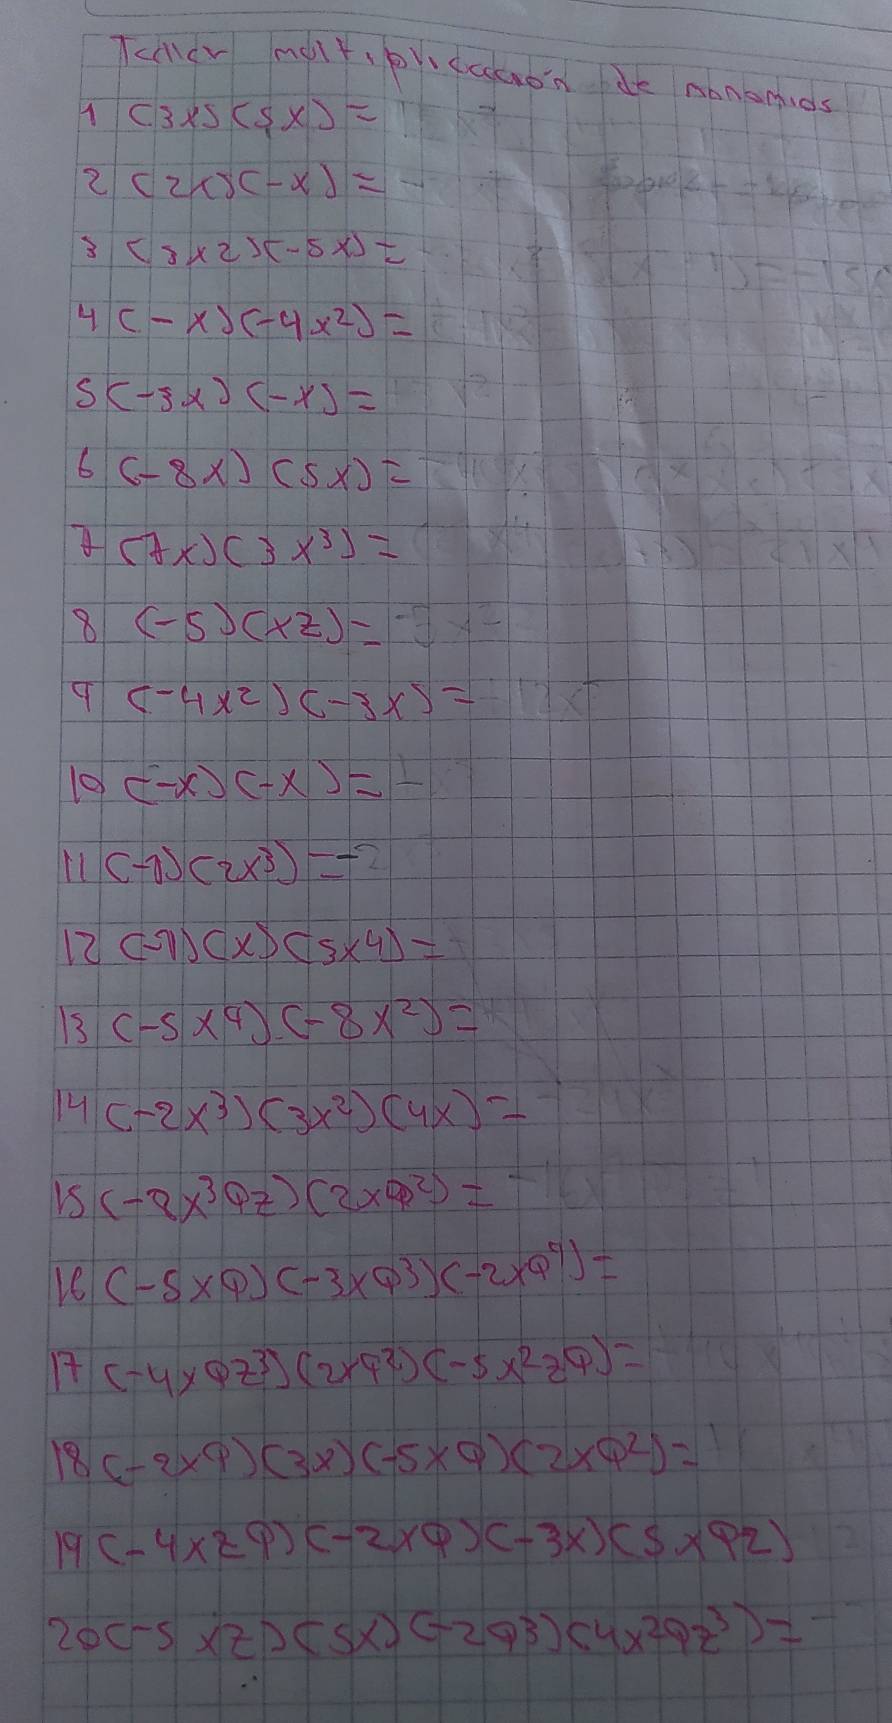 Taller multiplicación de monomios
1 (3x)(5x)=
2 (2x)(-x)=
3 (3x2)(-5x)=
4 (-x)(-4x²)=
5 (-3x)(-x)=
6 (-8x)(5x)=
7 (7x)(3x³)=
8 (-5)(xz)=
9 (-4x2)(-3x)=-12x
10 (-x)(-x)=
11 (-1)(2x³)=-2
12 (-1)(x)(5x4)=
13 (-5x4)(-8x²)=
14 (-2x³)(3x²)(4x)=
15 (-8x³φz)(2xφ²)=
16 (-5xφ)(-3xφ3)(-2xφ4)=
17 (-4xφz³)(2xφ²)(-5x²zφ)=
18 (-2xφ)(3x)(-5xφ)(2xφ²)=
19 (-4xzφ)(-2xφ)(-3x)(5xφz)
20 (-5xz)(5x)(-2φ3)(4x2φz³)=